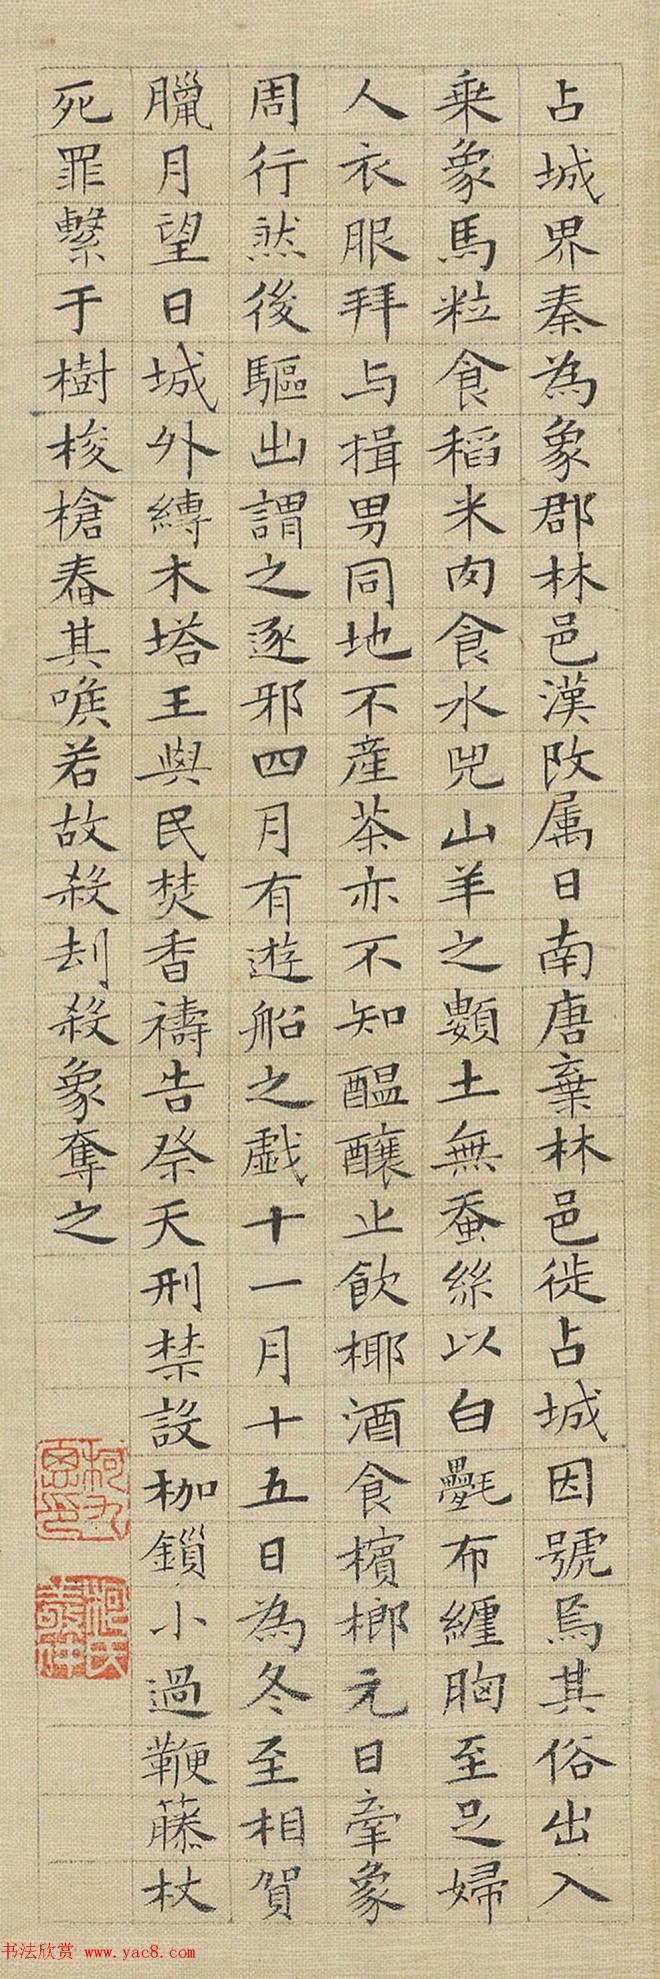 占城界秦為象郡林邑漢改属日南唐棄林邑徙占城因號焉其俗出入
乘象馬粒食稻米肉食水兕山羊之類土無蚕絲以白氎布纏胸至足婦
人衣服拜与揖男同地不産茶亦不知醞釀止飲椰酒食檳榔元日牽象
周行然後驅出謂之逐邪四月有遊船之戯十一月十五日為冬至相賀
臘月望日城外縛木塔王與民焚香禱告祭天刑禁設枷鎖小過鞭藤杖
死罪繫于樹梭槍舂其喉若故殺刦殺象奪之
柯九思印
柯氏敬仲
书法欣赏 www.yac8.com